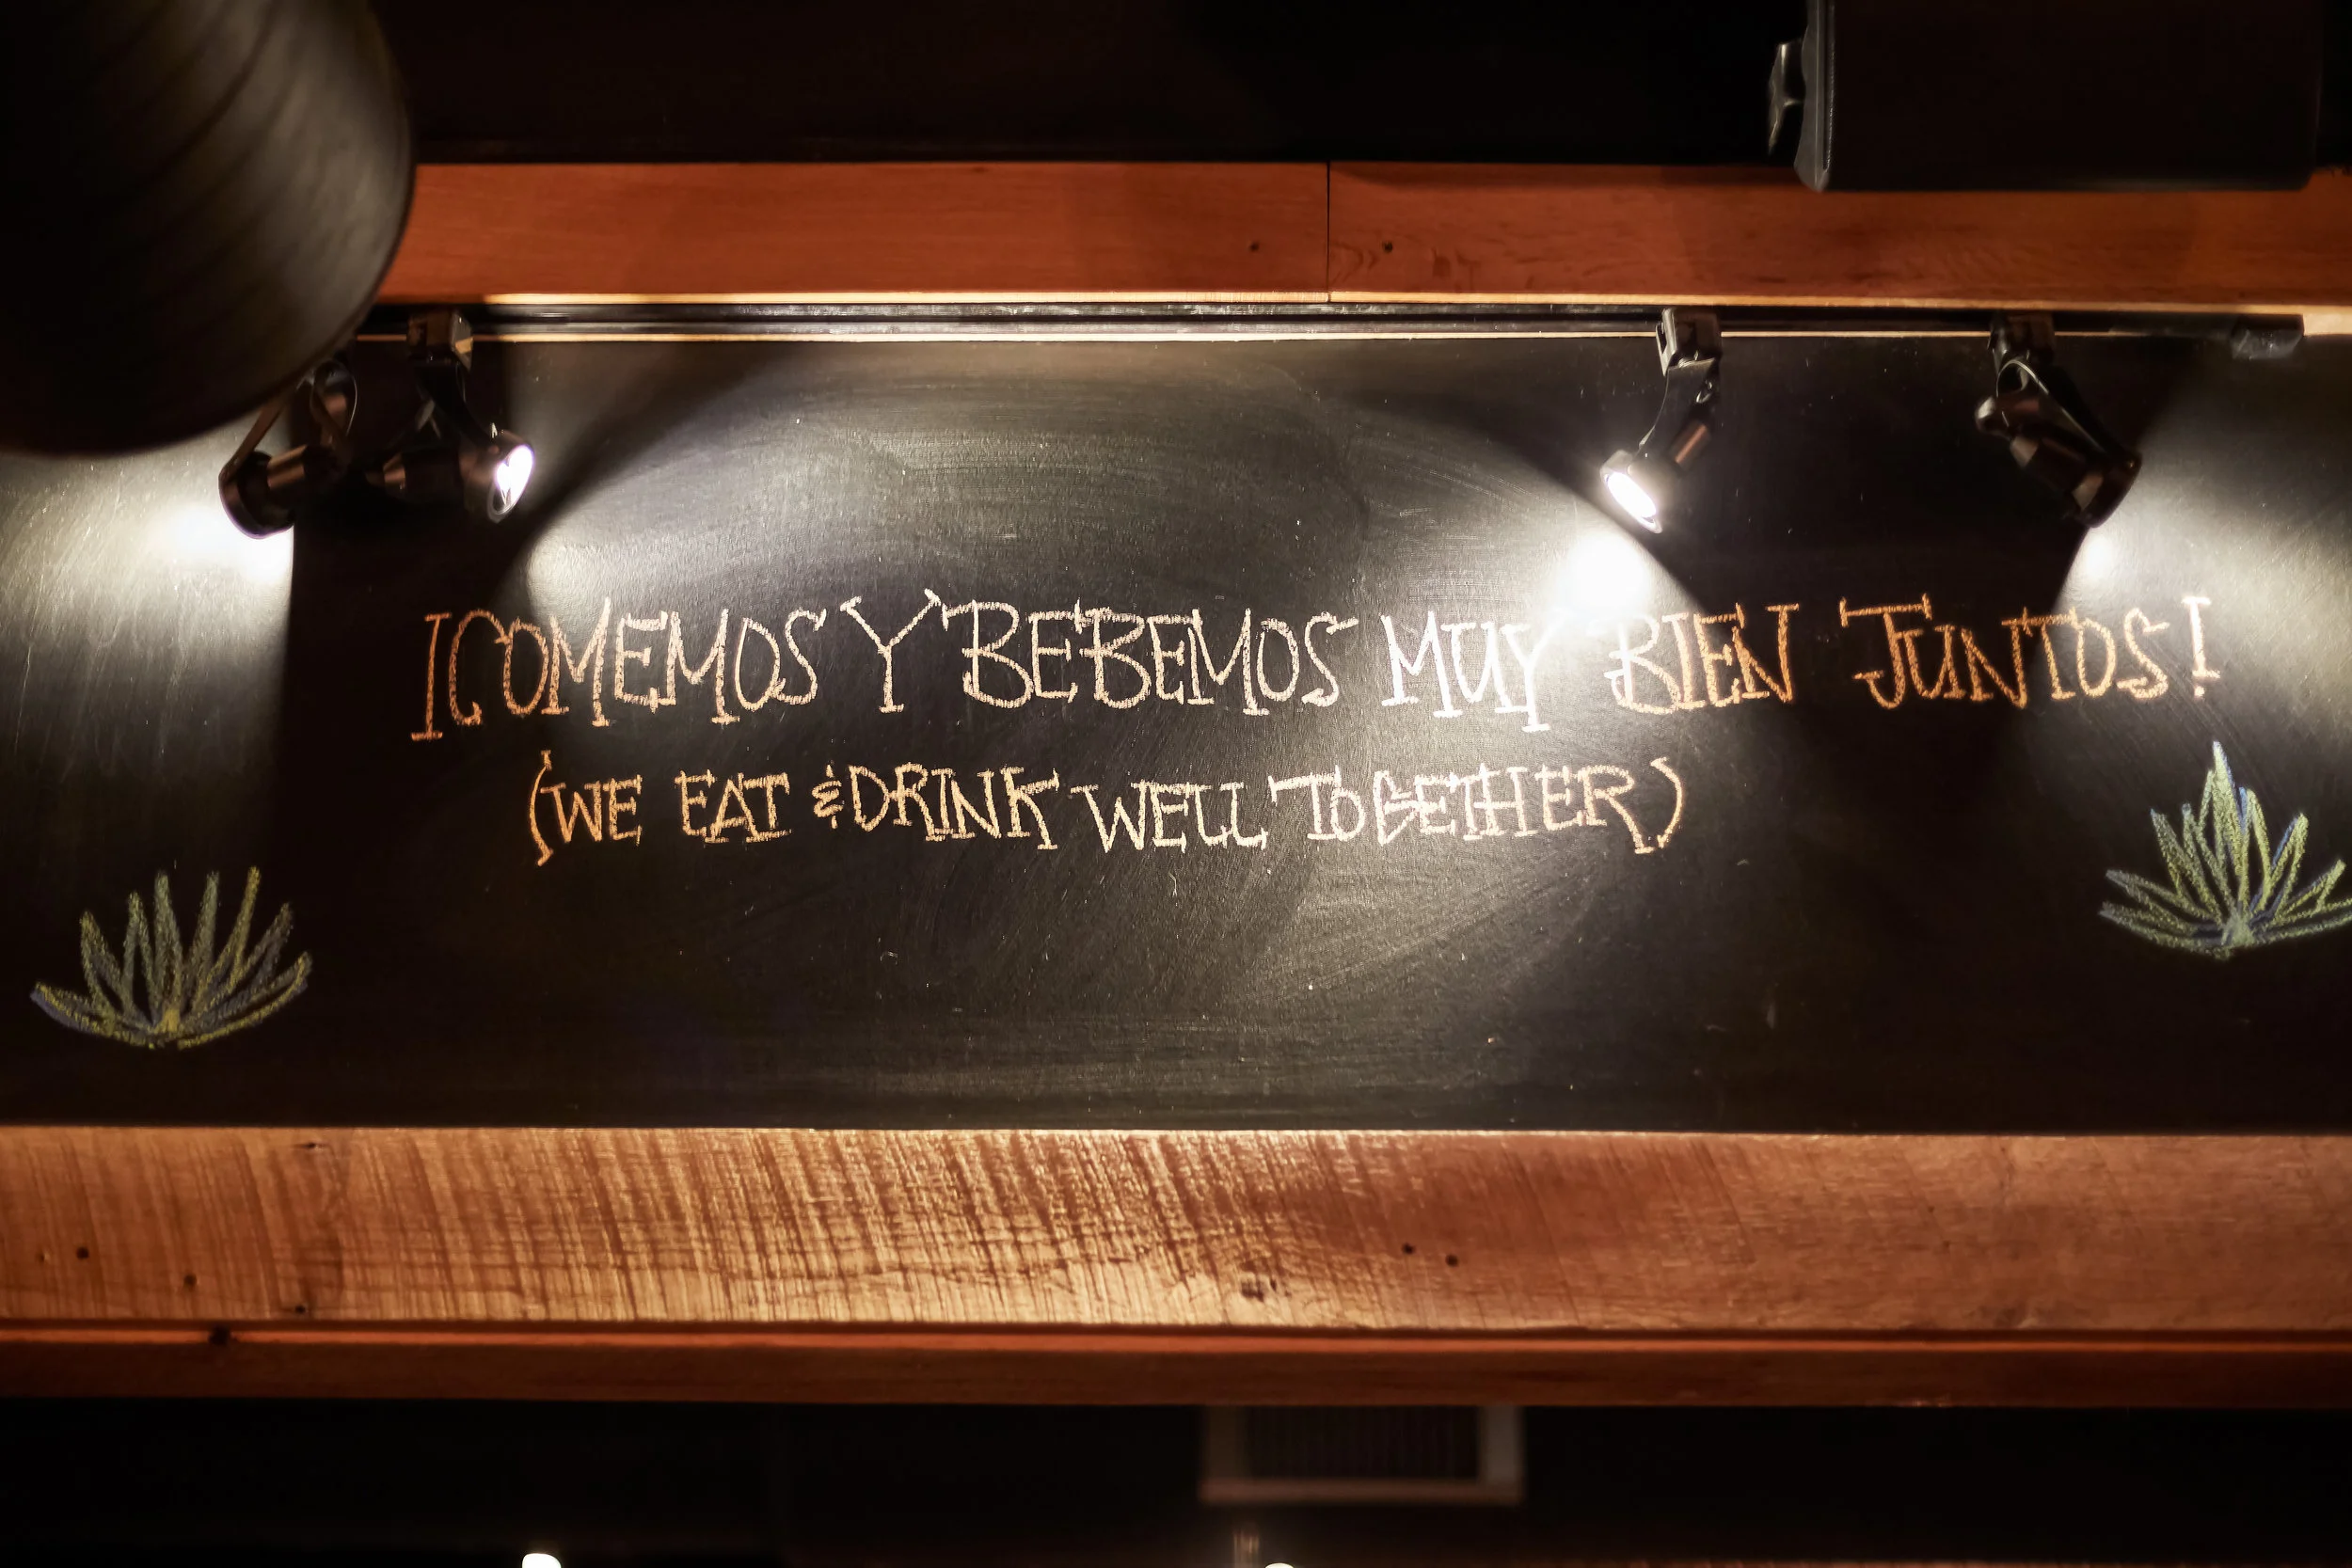 ¡COMEMOS Y BEBEMOS MUY BIEN JUNTOS!
(WE EAT & DRINK WELL TOGETHER)